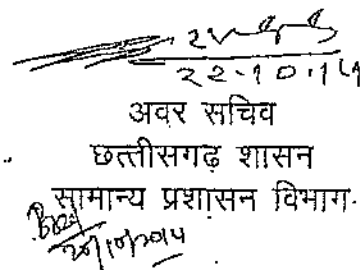 22.10.14
अवर सचिव
छत्तीसगढ़ शासन
सामान्य प्रशासन विभाग